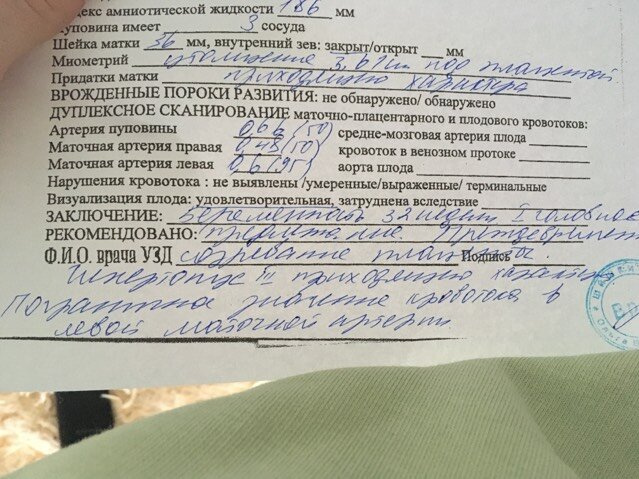 декс амниотической жидкости 186 мм
уповина имеет 3 сосуда
Шейка матки 36 мм, внутренний зев: закрыт/открыт ___ мм
Миометрий утолщение 3,6 см под плацентой
Придатки матки приходящего характера
ВРОЖДЕННЫЕ ПОРОКИ РАЗВИТИЯ: не обнаружено/ обнаружено
ДУПЛЕКСНОЕ СКАНИРОВАНИЕ маточно-плацентарного и плодового кровотоков:
Артерия пуповины 0,66 (50) средне-мозговая артерия плода
Маточная артерия правая 0,48 (50) кровоток в венозном протоке
Маточная артерия левая 0,6 (95) аорта плода
Нарушения кровотока : не выявлены /умеренные/выраженные/ терминальные
Визуализация плода: удовлетворительная, затруднена вследствие
ЗАКЛЮЧЕНИЕ: Беременность 32 недели I головное
РЕКОМЕНДОВАНО: предлежание. Преждевремен
Ф.И.О. врача УЗД созревание плаценты. Подпись
Гипертонус III приходящего
Пограничное значение кровотока в
левой маточной артерии